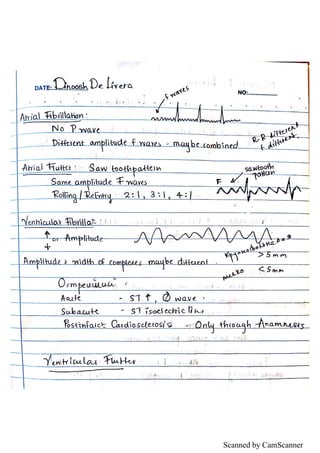 DATE: Dinoosh De Livera NO:
f waves
Atrial Fibrillation:
No P wave
Different amplitude f waves - maybe combined
R-R different
f. different
Atrial Flutter: Saw toothpattein
Same amplitude F waves
Rolling/ReEntry 2:1, 3:1, 4:1
F
sawtooth
pattern
Ventricular Fibrillat:
↑ or Amplitude
↓
>5mm
Amplitude & width of complexes maybe different
<5mm
Acute - ST ↑, Q wave
Subacute - ST isoelectric line
Postinfarct Cardiosclerosis - Only through Anamnesis
Ventricular Flutter
Scanned by CamScanner